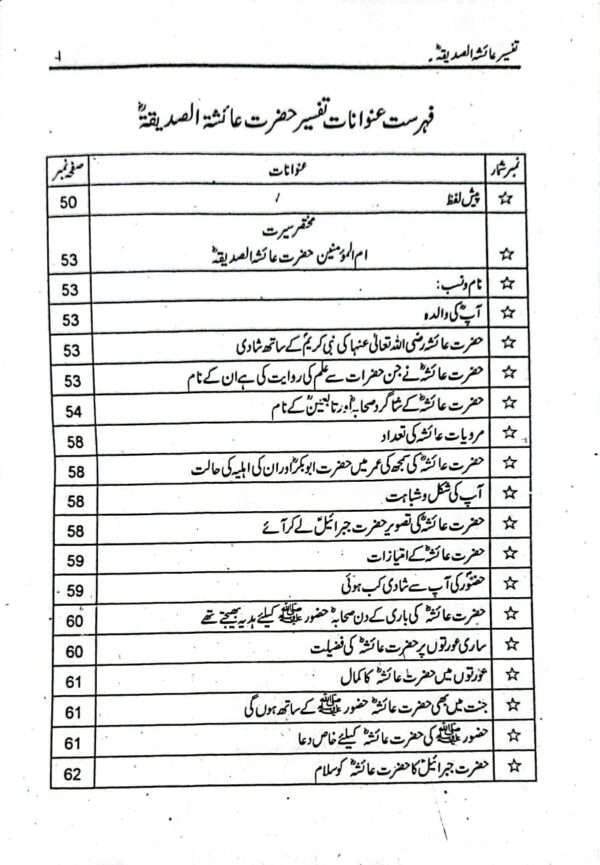 تفسیر عائشہ الصدیقہؓ۔ ۴
فہرست عنوانات تفسیر حضرت عائشۃ الصدیقۃؓ
نمبر شمار عنوانات صفحہ نمبر
☆ پیش لفظ 50
مختصر سیرت
☆ ام المؤمنین حضرت عائشہ الصدیقہؓ 53
☆ نام و نسب: 53
☆ آپؓ کی والدہ 53
☆ حضرت عائشہ رضی اللہ تعالیٰ عنہا کی نبی کریمؐ کے ساتھ شادی 53
☆ حضرت عائشہؓ نے جن حضرات سے علم کی روایت کی ہے ان کے نام 53
☆ حضرت عائشہؓ کے شاگرد صحابہؓ اور تابعینؒ کے نام 54
☆ مرویات عائشہ کی تعداد 58
☆ حضرت عائشہؓ کی سمجھ کی عمر میں حضرت ابوبکرؓ اور ان کی اہلیہ کی حالت 58
☆ آپ کی شکل و شباہت 58
☆ حضرت عائشہؓ کی تصویر حضرت جبرائیلؑ لے کر آئے 58
☆ حضرت عائشہؓ کے امتیازات 59
☆ حضورؐ کی آپ سے شادی کب ہوئی 59
☆ حضرت عائشہؓ کی باری کے دن صحابہؓ حضور ﷺ کیلئے ہدیہ بھیجتے تھے 60
☆ ساری عورتوں پر حضرت عائشہؓ کی فضیلت 60
☆ عورتوں میں حضرت عائشہؓ کا کمال 61
☆ جنت میں بھی حضرت عائشہؓ حضور ﷺ کے ساتھ ہوں گی 61
☆ حضور ﷺ کی حضرت عائشہؓ کیلئے خاص دعا 61
☆ حضرت جبرائیلؑ کا حضرت عائشہؓ کو سلام 62